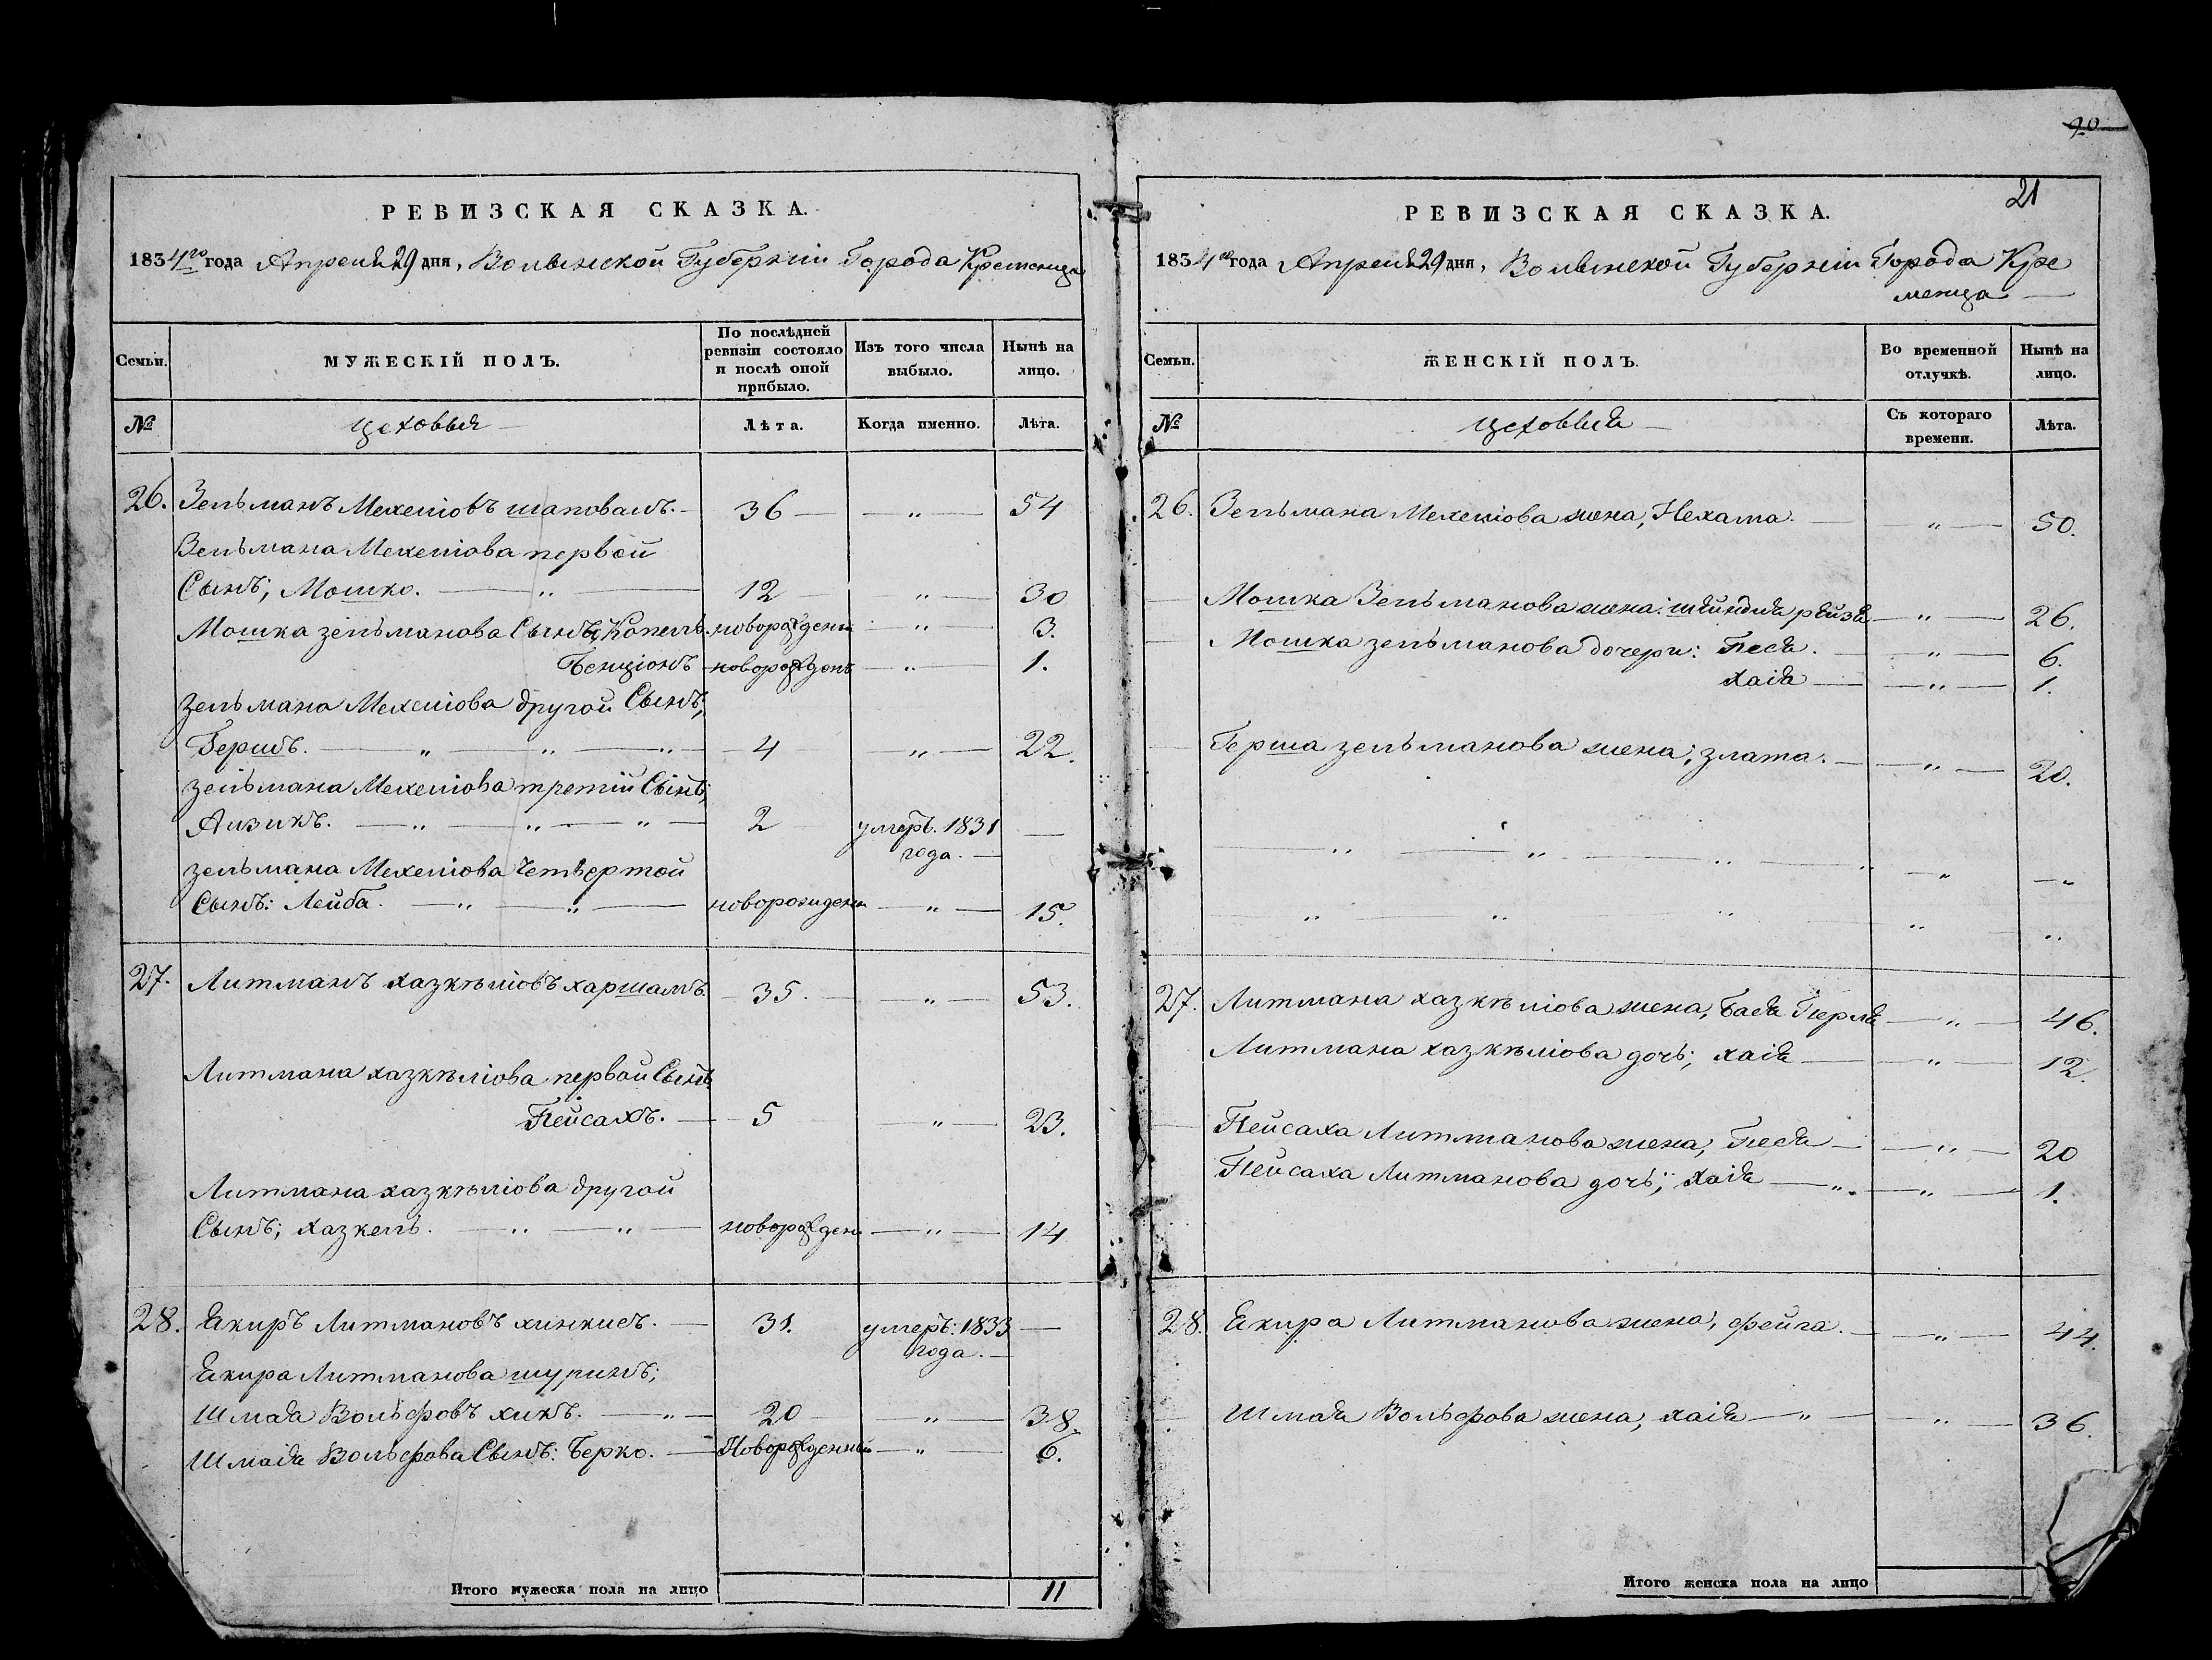 РЕВИЗСКАЯ СКАЗКА.
1834го года Апреля 29 дня, Волынской Губерніи Города Кременца
Семьи.
МУЖЕСКІЙ ПОЛЪ.
По послѣдней ревизіи состояло и послѣ оной прибыло.
Изъ того числа выбыло.
Нынѣ на лицо.
№
цеховыя
Лѣта.
Когда именно.
Лѣта.
26. Зельманъ Мехеліовъ шаповалъ. 36 — „ — 54
Зельмана Мехеліова первой
Сынъ; Мошко. — „ — 12 „ — 30
Мошка зельманова Сынъ; Копель. новорожденъ — „ — 3.
Бенціонъ новорожденъ — „ — 1.
Зельмана Мехеліова другой Сынъ;
Гершъ. — „ — „ — „ — 4 „ — 22.
зельмана Мехеліова третій Сынъ;
Аизикъ. — „ — „ — „ — 2 умеръ. 1831 —
года. —
зельмана Мехеліова Четвертой
Сынъ: Лейба. — „ — „ — новорожденъ — „ — 15.
27. Литманъ хазкѣліовъ харшамъ. 35. — „ — 53.
Литмана хазкѣліова первой Сынъ
Пейсахъ. — 5 „ — 23.
Литмана хазкѣліова другой
Сынъ; хазкель. „ — „ — новорожден — „ — 14
28. Якиръ Литмановъ хинкисъ. — 31. умеръ: 1833 —
года. —
Якира Литманова шуринъ;
Шмая Вольфовъ хикъ. — „ — 20 — „ — 38.
Шмаія Вольфова Сынъ: Берко. — Новорожденный — „ — 6.
Итого мужеска пола на лицо 11
90
21
РЕВИЗСКАЯ СКАЗКА.
1834го года Апреля 29 дня, Волынской Губерніи Города Кре
менца —
Семьи.
ЖЕНСКІЙ ПОЛЪ.
Во временной отлучкѣ.
Нынѣ на лицо.
№
цеховыя —
Съ котораго времени.
Лѣта.
26. Зельмана Мехеліова жена, Нехама. — „ — 50.
Мошка Зельманова жена: шейндля рейзя — „ — 26.
Мошка зельманова дочери: Песя. — „ — 6.
хаія — „ — 1.
Герша зельманова жена; злата. — „ — 20.
27. Литмана хазкѣліова жена, Бася Перля — „ — 46.
Литмана хазкѣліова дочь; хаія — „ — 12.
Пейсаха Литманова жена; Песя — „ — 20
Пейсаха Литманова дочь; хаія — „ — „ — 1.
28. Якира Литманова жена, фейга. — „ — 44.
Шмая Вольфова жена, хаія — „ — „ — 36.
Итого женска пола на лицо